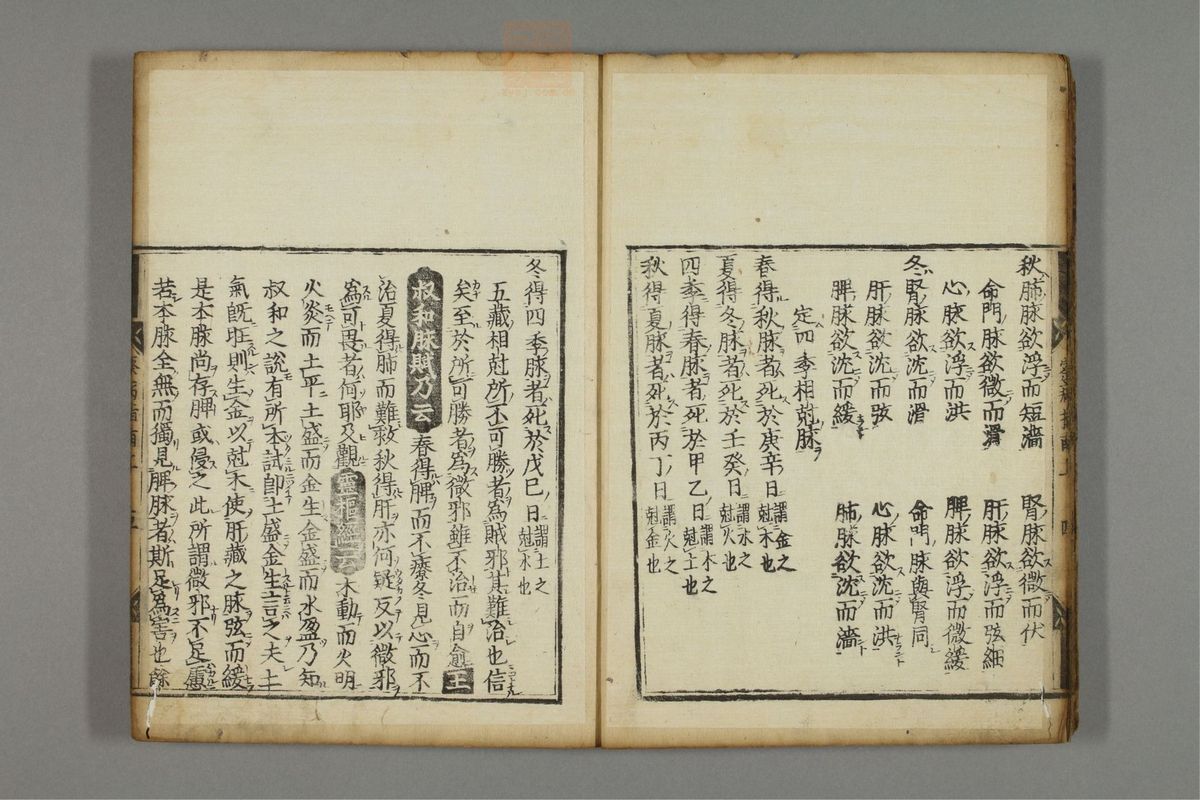 秋肺脉欲浮而短濇 腎脉欲微而伏
命門脉欲微而滑 肝脉欲浮而弦細
心脉欲浮而洪 脾脉欲浮而微緩
冬腎脉欲沈而滑 命門脉與腎同
肝脉欲沈而弦 心脉欲沈而洪
脾脉欲沈而緩 肺脉欲沈而濇
定四季相尅脉
春得秋脉者死於庚辛日謂金之尅木也
夏得冬脉者死於壬癸日謂水之尅火也
四季得春脉者死於甲乙日謂木之尅土也
秋得夏脉者死於丙丁日謂火之尅金也
冬得四季脉者死於戊巳日謂土之尅水也
五藏相尅所不可勝者爲賊邪其難治也信
矣至於所可勝者爲微邪雖不治而自愈王
叔和脉賦乃云春得脾而不療冬見心而不
治夏得肺而難救秋得肝亦何疑反以微邪
爲可畏者何耶及觀靈樞經云木動而火明
火炎而土平土盛而金生金盛而水盈乃知
叔和之說有所本試即土盛金生言之夫土
氣旣旺則生金以尅木使肝藏之脉弦而緩
是本脉尚存脾或侵之此所謂微邪不足慮
若本脉全無而獨見脾脉者斯足爲害也餘